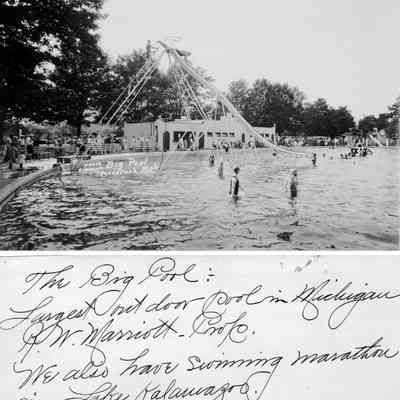 Big Pool
The Big Pool:
Largest outdoor Pool in Michigan
A. W. Marriott - Prop.
We also have swinning marathon
in Lake Kalamazoo.